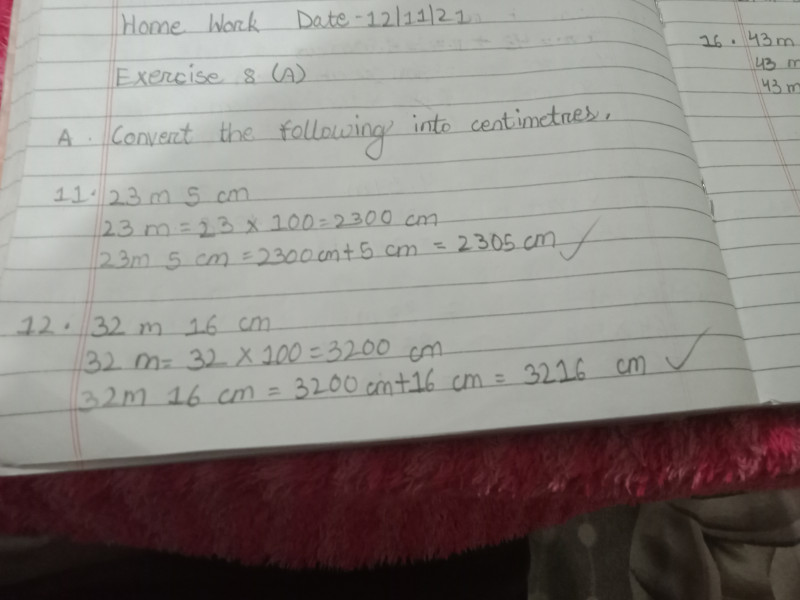 Home Work Date - 12/11/21
Exercise 8 (A)
A. Convert the following into centimetres.
11. 23 m 5 cm
23 m = 23 × 100 = 2300 cm
23m 5 cm = 2300cm + 5 cm = 2305 cm
12. 32 m 16 cm
32 m = 32 × 100 = 3200 cm
32m 16 cm = 3200 cm + 16 cm = 3216 cm
16. 43m
43 m
43 m